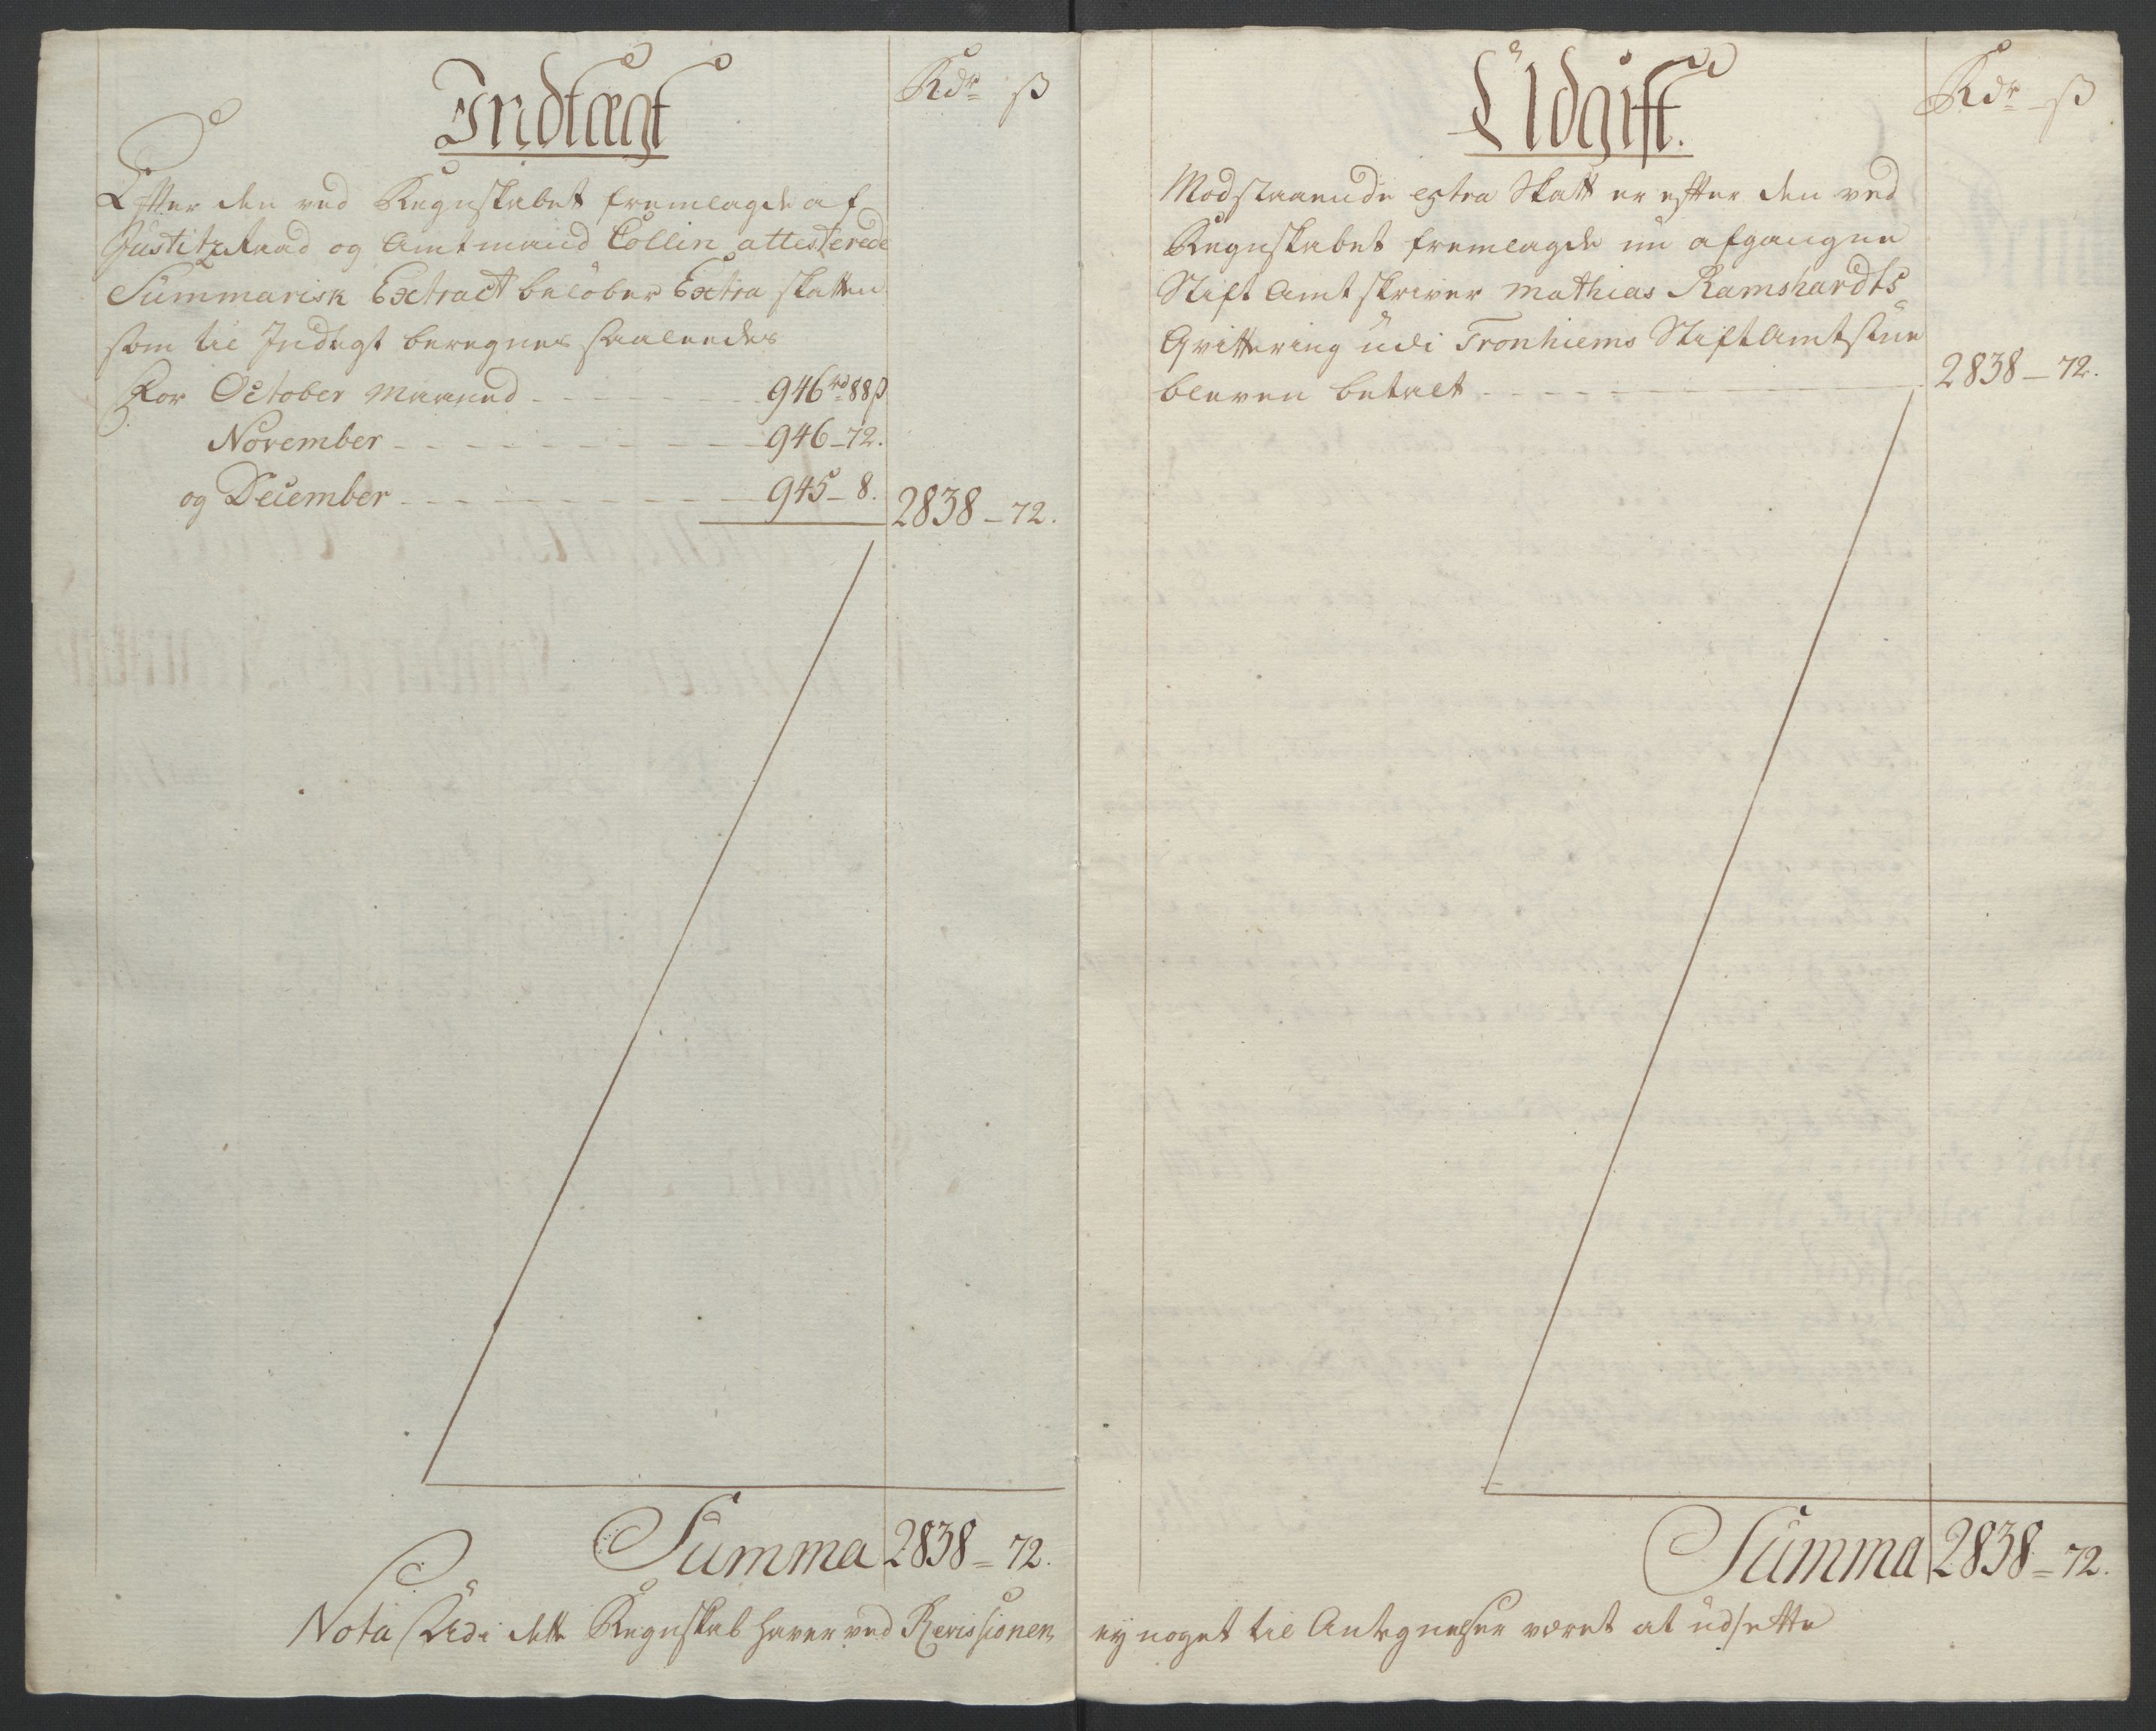 Indtægt
Rdr ß
Efter den ved Regnskabet fremlagde af
Justitz Raad og Amtmand Collin attesterede
Summarisk Extract beløber Extra skatten
som til Indtægt beregnes saaleedes
For October Maaned - - - 946 rd 88 ß
November - - - 946 - 72.
og December - - - 945 - 8. 2838 - 72.
Summa 2838 = 72.
Nota Udi dette Regnskab haver ved Revissionen
Udgift.
Rdr ß
Modstaaende extra Skatt er efter den ved
Regnskabet fremlagde nu afgangne
Stift Amt skriver Mathias Ramshardts
Qvittering udi Tronhiems Stift Amtstue
bleven betalt - - - 2838 - 72.
Summa 2838 = 72.
ey noget til Antegnelser været at udsette